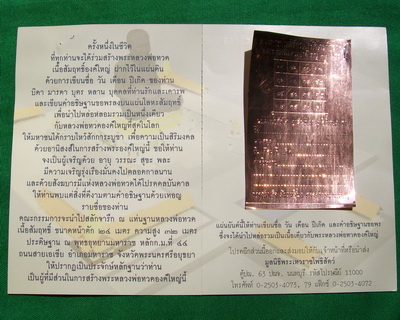 ครั้งหนึ่งในชีวิต
ที่ทุกท่านจะได้ร่วมสร้างพระหลวงพ่อทวด
เนื้อสัมฤทธิ์องค์ใหญ่ ฝากไว้ในแผ่นดิน
ด้วยการเขียนชื่อ วัน เดือน ปีเกิด ของท่าน
บิดา มารดา บุตร หลาน บุคคลที่ท่านรักและเคารพ
และเขียนคำอธิษฐานขอพรลงบนแผ่นโลหะสัมฤทธิ์
เพื่อนำไปหล่อหลอมรวมเป็นหนึ่งเดียว
กับหลวงพ่อทวดองค์ใหญ่ที่สุดในโลก
ให้มหาชนได้กราบไหว้สักการะบูชา เพื่อความเป็นสิริมงคล
ด้วยอานิสงส์ในการสร้างพระองค์ใหญ่นี้ ขอให้ท่าน
จงเป็นผู้เจริญด้วย อายุ วรรณะ สุขะ พละ
มีความเจริญรุ่งเรืองมั่นคงไปตลอดกาลนาน
และด้วยสังฆบารมีแห่งหลวงพ่อทวดได้โปรดดลบันดาล
ให้ท่านพบแต่สิ่งที่ดีงามตามคำอธิษฐานด้วยเทอญ
รายชื่อของท่าน
คณะกรรมการจะนำไปสลักจารึก ณ แท่นฐานหลวงพ่อทวด
เนื้อสัมฤทธิ์ ขนาดหน้าตัก ๒๔ เมตร ความสูง ๓๒ เมตร
ประดิษฐาน ณ พุทธอุทยานมหาราช หลักก.ม.ที่ ๔๔
ถนนสายเอเซีย อำเภอมหาราช จังหวัดพระนครศรีอยุธยา
ให้ปรากฏเป็นประจักษ์หลักฐานว่าท่าน
เป็นผู้ที่มีส่วนในการสร้างพระหลวงพ่อทวดองค์ใหญ่นี้
แผ่นยันต์นี้ให้ท่านเขียนชื่อ วัน เดือน ปีเกิด และคำอธิษฐานขอพร
ซึ่งจะได้นำไปหล่อรวมเป็นเนื้อเดียวกับพระหลวงพ่อทวดองค์ใหญ่
โปรดผนึกส่วนนี้ออกและส่งมอบให้กับเจ้าหน้าที่หรือนำส่ง
ตู้ปณ. 63 ปนจ. นนทบุรี รหัสไปรษณีย์ 11000
โทรศัพท์ 0-2503-4073, 79 แฟ็กซ์ 0-2503-4072